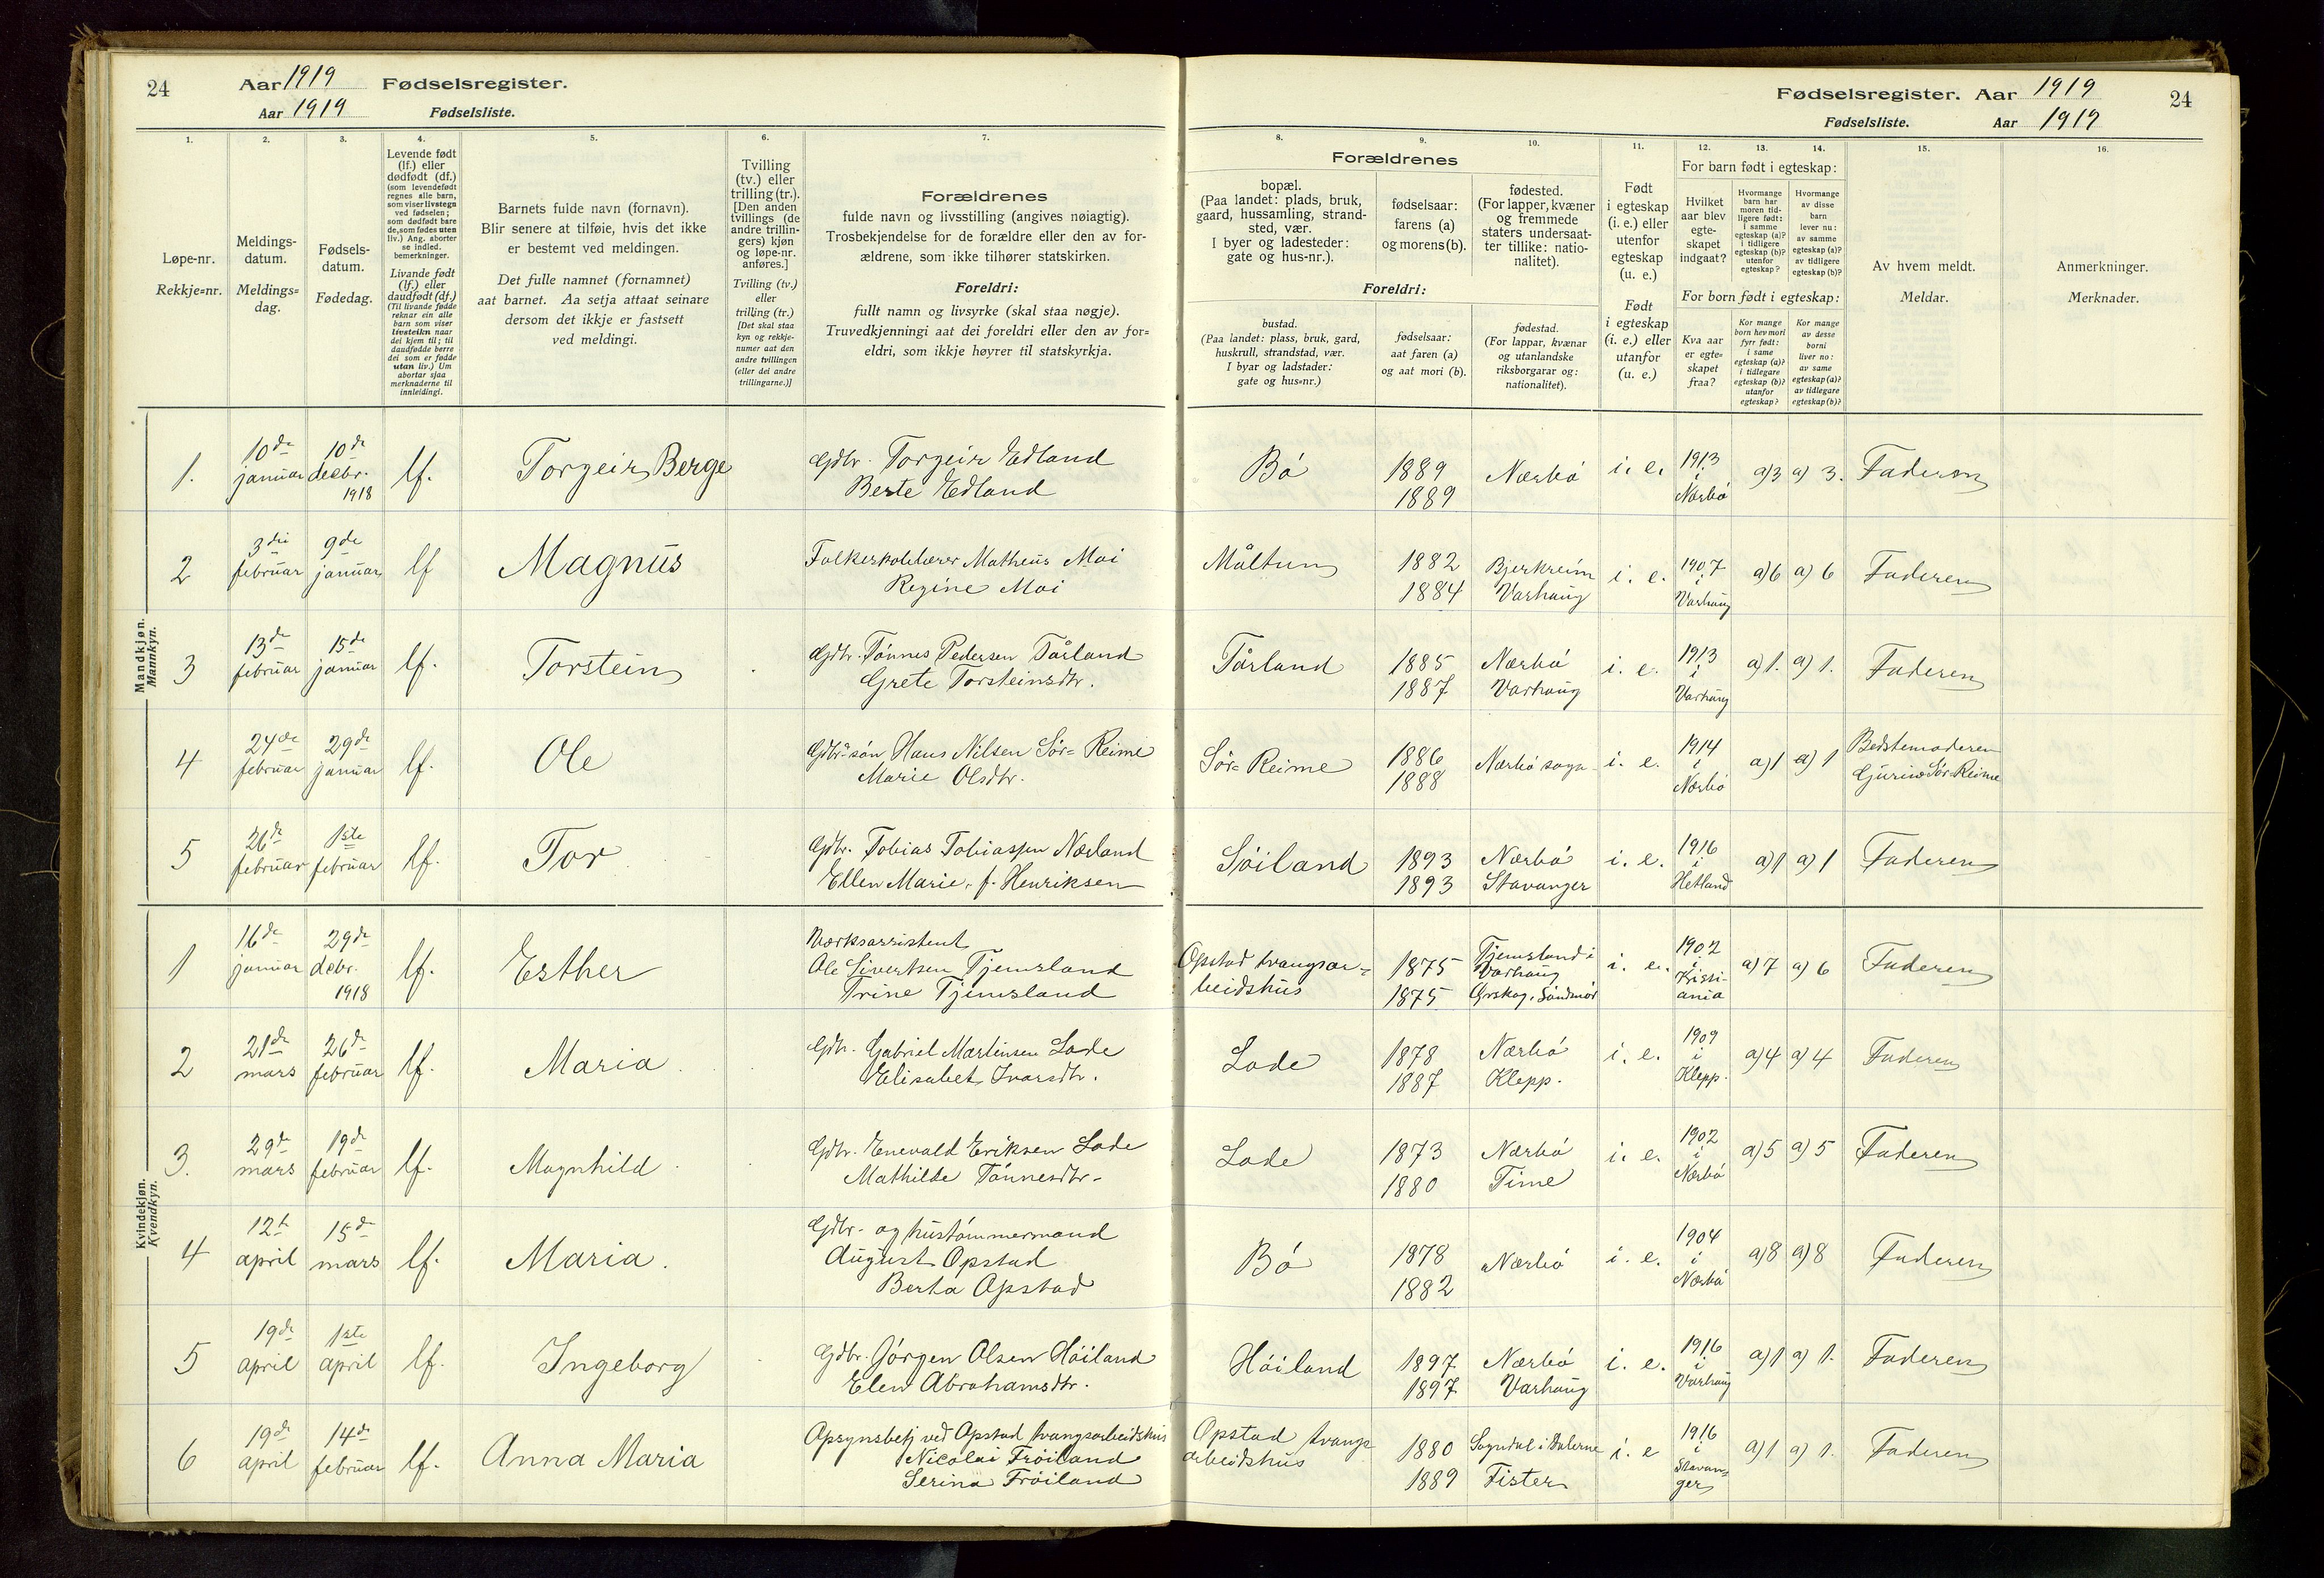 24 Aar 1919 Fødselsregister.
Aar 1919 Fødselsliste.
Fødselsregister. Aar 1919 24
Fødselsliste. Aar 1919
1. 2. 3. 4. 5. 6. 7.
Løpe-nr.
Rekkje=nr.
Meldings-
datum.
Meldings=
dag.
Fødsels-
datum.
Fødedag.
Levende født
(lf.) eller
dødfødt (df.)
(som levendefødt
regnes alle barn,
som viser livstegn
ved fødselen;
som dødfødt bare
de, som fødes uten
liv.) Ang. aborter
se indled.
bemerkninger.
Livande født
(lf.) eller
daudfødt (df.)
(Til livande fødde
reknar ein alle
barn som viser
livsteikn naar
dei kjem til; til
daudfødde berre
dei som er fødde
utan liv.) Um
abortar sjaa
merknaderne til
innleidingi.
Barnets fulde navn (fornavn).
Blir senere at tilføie, hvis det ikke
er bestemt ved meldingen.
Det fulle namnet (fornamnet)
aat barnet. Aa setja attaat seinare
dersom det ikkje er fastsett
ved meldingi.
Tvilling
(tv.) eller
trilling (tr.).
[Den anden
tvillings (de
andre trillin-
gers) kjøn
og løpe-nr.
anføres.]
Tvilling (tv.)
eller
trilling (tr.)
[Det skal staa
kyn og rekkje-
numer aat den
andre tvillingen
(eller dei andre
trillingarne.)]
Forældrenes
fulde navn og livsstilling (angives nøiagtig).
Trosbekjendelse for de forældre eller den av for-
ældrene, som ikke tilhører statskirken.
Foreldri:
fullt namn og livsyrke (skal staa nøgje).
Truvedkjenningi aat dei foreldri eller den av for=
eldri, som ikkje høyrer til statskyrkja.
8. 9. 10. 11. 12. 13. 14. 15. 16.
Forældrenes
bopæl.
(Paa landet: plads, bruk,
gaard, hussamling, strand-
sted, vær.
I byer og ladesteder:
gate og hus-nr.).
fødselsaar:
farens (a)
og morens (b).
fødested.
(For lapper, kvæner
og fremmede
staters undersaat-
ter tillike: natio-
nalitet).
Foreldri:
bustad.
(Paa landet: plass, bruk, gard,
huskrull, strandstad, vær.
I byar og ladstader:
gate og hus=nr.)
fødselsaar:
aat faren (a)
og aat mori (b).
fødestad.
(For lappar, kvænar
og utanlandske
riksborgarar og:
nationalitet).
Født
i egteskap
(i. e.) eller
utenfor
egteskap
(u. e.)
Født
i egteskap
(i. e.) eller
utanfor
(u. e.)
For barn født i egteskap:
Hvilket
aar blev
egte-
skapet
indgaat?
Hvormange
barn har
moren tid-
ligere født:
i samme
egteskap (a)?
i tidligere
egteskap (b)?
utenfor
egteskap?
Hvormange
av disse
barn
lever nu:
av samme
egteskap (a)?
av tidligere
egteskap (b)?
For born født i egteskap:
Kva aar
er egte=
skapet
fraa?
Kor mange
born hev mori
fyrr født:
i same
egteskap (a)?
i tidlegare
egteskap (b)?
utanfor
egteskap?
Kor mange
av desse
borni
liver no:
av same
egteskap (a)?
av tidlegare
egteskap (b)?
Av hvem meldt.
Meldar.
Anmerkninger.
Merknader.
Mandkjøn.
Mannkyn.
1. 10de januar 10de decbr. 1918 lf. Torgeir Berge Gdbr. Torgeir Edland Berte Edland Bó 1889 1889 Nærbó i. e. 1913 i Nærbó a) 3 a) 3. Faderen
2 3die februar 9de januar lf Magnus Folkeskolelærer Matheus Moi Regine Moi Måltun 1882 1884 Bjerkreim Varhaug i. e. 1907 i Varhaug a) 6 a) 6 Faderen
3 13de februar 15de januar lf. Torstein Gdbr. Tónnes Pedersen Tårland Grete Torsteinsdtr. Tårland 1885 1887 Nærbó Varhaug i. e. 1913 i Varhaug a) 1. a) 1. Faderen
4 24de februar 29de januar lf. Ole Gdbr. són Hans Nilsen Sór=Reime Marie Olsdtr. Sór=Reime 1886 1888 Nærbó sogn i. e. 1914 i Nærbó a) 1 a) 1 Bedstemoderen Gurine Sór-Reime
5 26de februar 1ste februar lf. Tor Gdbr. Tobias Tobiassen Nærland Ellen Marie, f. Henriksen Sóiland 1893 1893 Nærbó Stavanger i. e. 1916 i Hetland a) 1 a) 1 Faderen
Kvindekjøn.
Kvendkyn.
1 16de januar 29de decbr. 1918 lf. Esther Værksassistent Ole Sivertsen Tjemsland Trine Tjemsland Opstad tvangsar=beidshus 1875 1875 Tjemsland i Varhaug Ørskog, Sóndmór i. e. 1902 i Kristi-ania a) 7 a) 6 Faderen
2 21de mars 26de februar lf. Maria Gdbr. Gabriel Martinsen Lode Elisabet Ivarsdtr. Lode 1878 1887 Nærbó Klepp. i. e. 1909 i Klepp. a) 4 a) 4 Faderen
3. 29de mars 19de februar lf. Magnhild Gdbr. Enevald Eriksen Lode Mathilde Tónnesdtr. Lode 1873 1880 Nærbó Time i. e. 1902 i Nærbó a) 5 a) 5 Faderen
4 12te april 15de mars lf. Maria. Gdbr. og hustómmermand August Opstad Berta Opstad Bó 1878 1882 Nærbó i. e. 1904 i Nærbó a) 8 a) 8 Faderen
5 19de april 1ste april lf. Ingeborg Gdbr. Jórgen Olsen Hóiland Elen Abrahamsdtr. Hóiland 1897 1897 Nærbó Varhaug i. e. 1916 i Varhaug a) 1 a) 1. Faderen
6 19de april 14de februar lf. Anna Maria Opsynsbetj ved Opstad tvangsarbeidshus Nicolai Fróiland Serina Fróiland Opstad tvangs arbeidshus 1880 1889 Sogndal i Dalerne Fister i. e 1916 i Stavan=ger a) 1 a) 1. Faderen